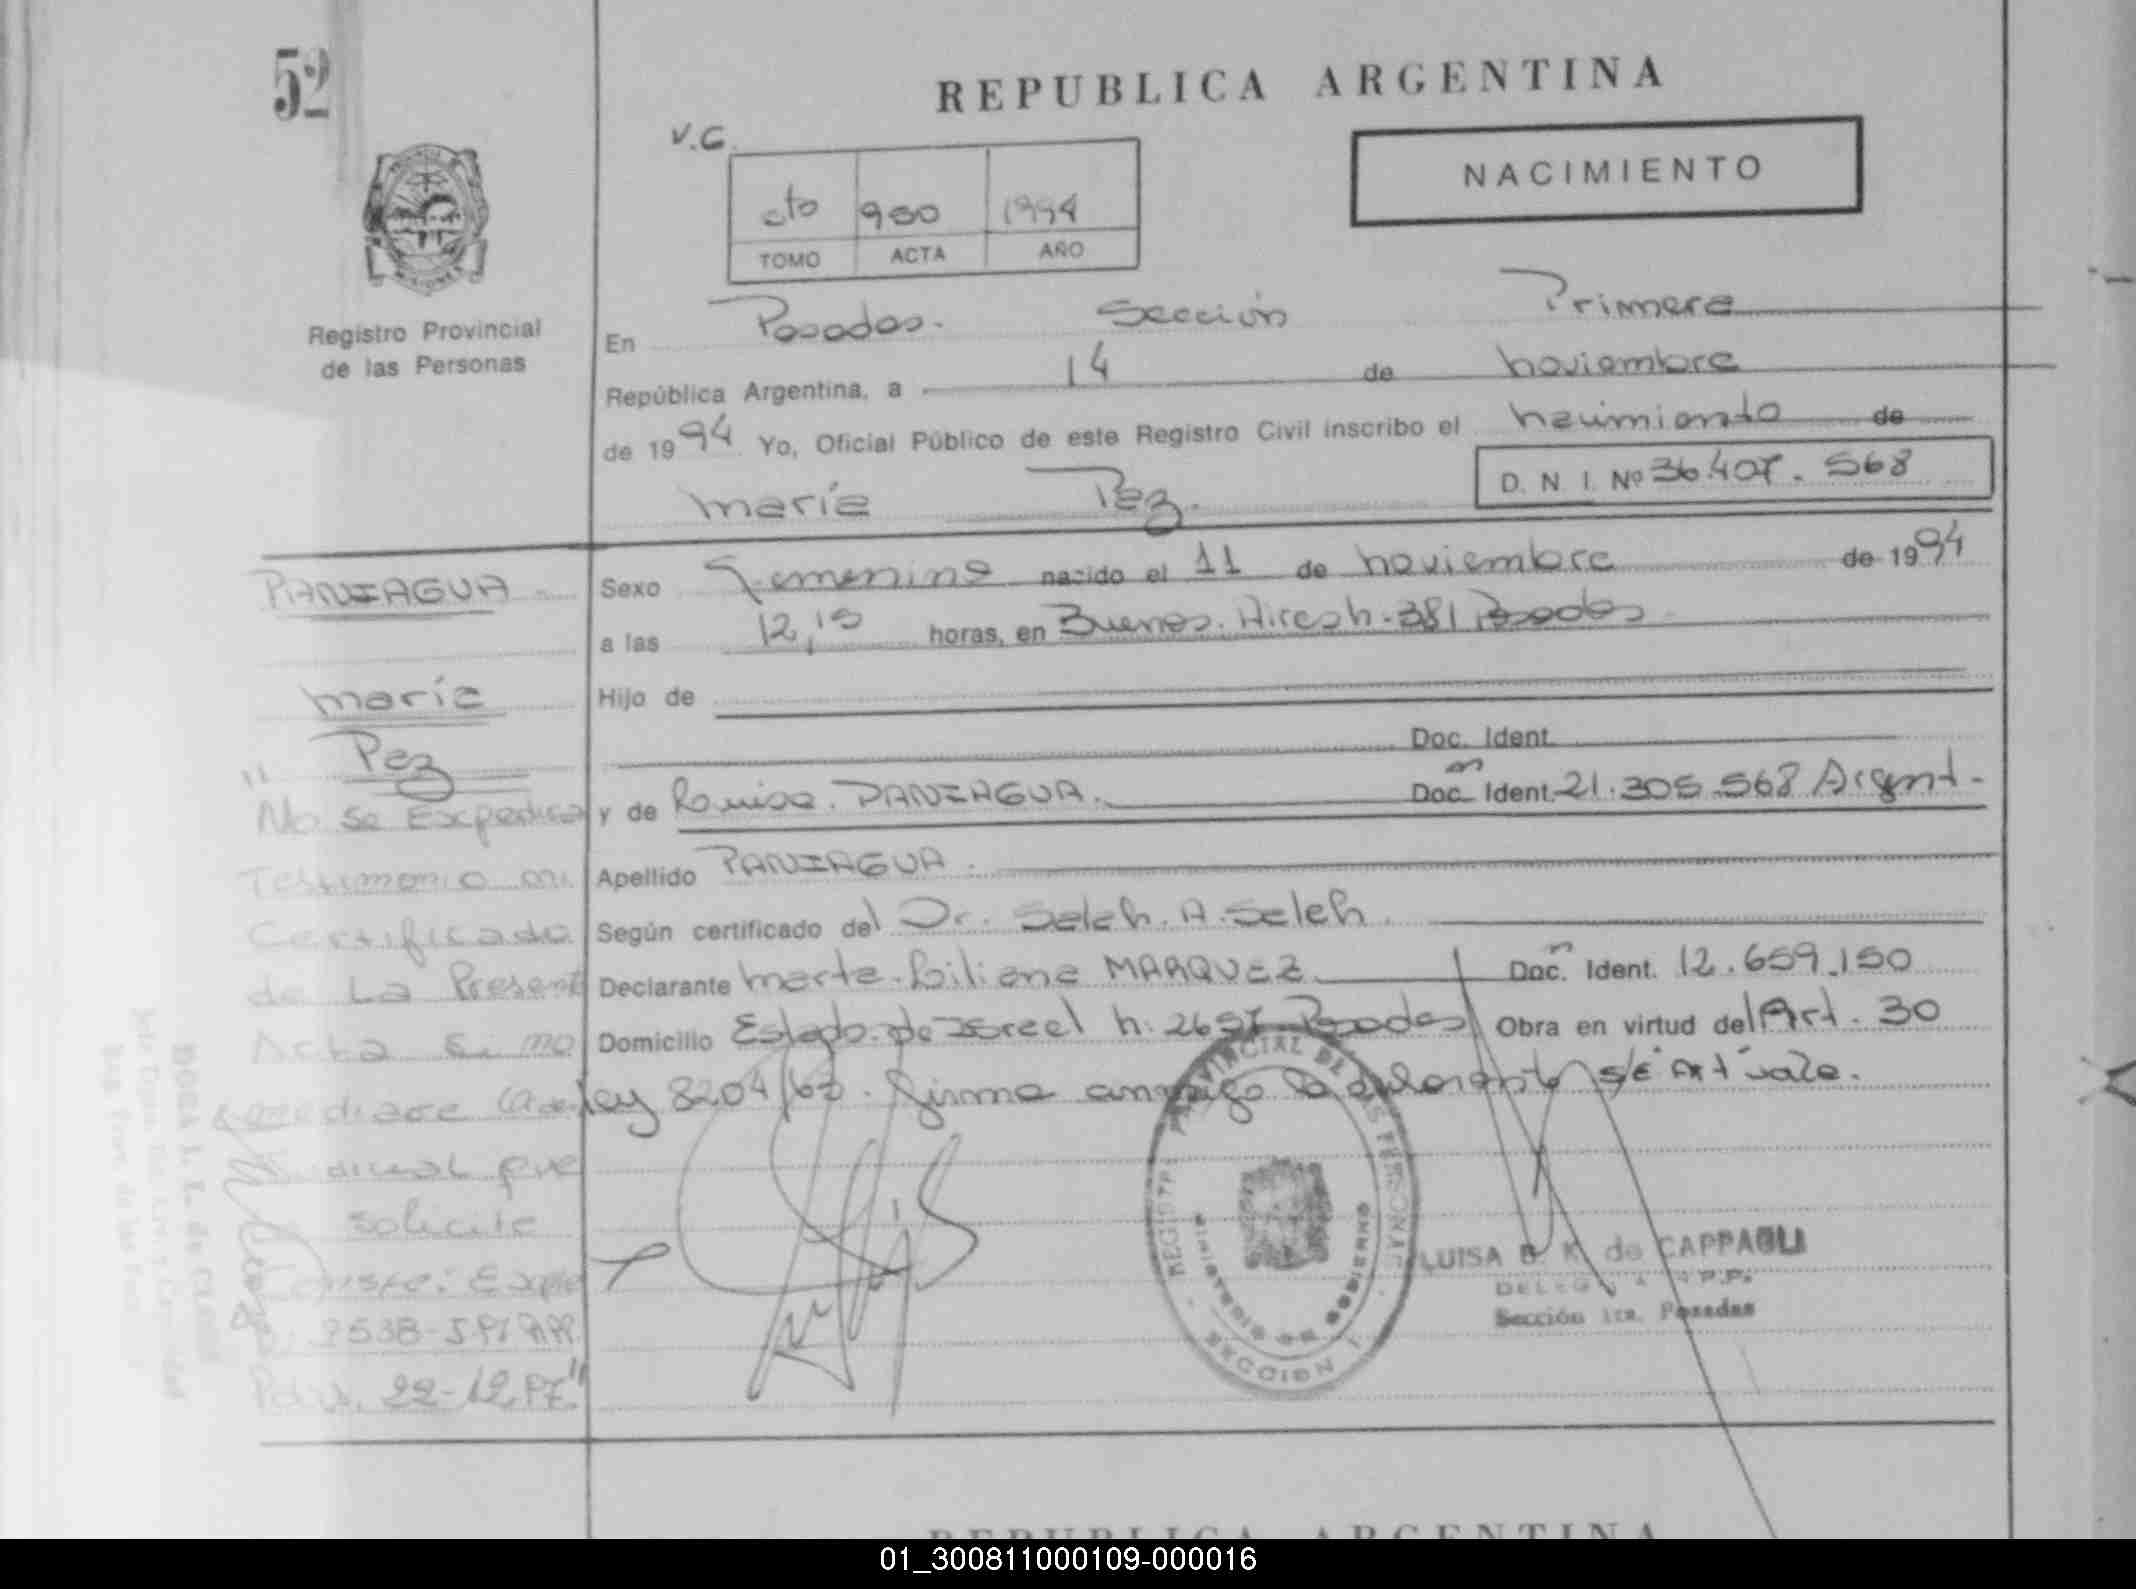 52
REPUBLICA ARGENTINA
V.C.
NACIMIENTO
cto 950 1994
TOMO ACTA AÑO
Registro Provincial
de las Personas
En Posadas. Sección Primera
República Argentina, a 14 de noviembre
de 1994 Yo, Oficial Público de este Registro Civil inscribo el nacimiento de
D. N. I. Nº 36.407.568
María Paz.
PANIAGUA
Sexo Femenino nacido el 11 de noviembre de 1994
a las 12,15 horas, en Buenos Aires h. 381 Posadas
María
Paz
Hijo de
Doc. Ident.
y de Ramisa. PANIAGUA. Doc. Ident. 21.305.568 Argent.
Apellido PANIAGUA.
Según certificado del Dr. Saleh. A. Saleh
Declarante Marta Liliana MARQUEZ Doc. Ident. 12.659.150
Domicilio Estado de Israel h. 2657 Posadas Obra en virtud del Art. 30
ley 8204/63. Firma conmigo la declarante s/E Ant vale.
" No se Expedira
Testimonio ni
Certificado
de La Present
Acta si no
mediare
Judicial que
solicite
Conste: Expte
2538-
22-12
REGISTRO PROVINCIAL DE LAS PERSONAS
MINISTERIO DE GOBIERNO
SECCION 1
LUISA B. K. de CAPPAGLI
DELEGADA R.P.P.
Sección 1ra. Posadas
REPUBLICA ARGENTINA
01_300811000109-000016